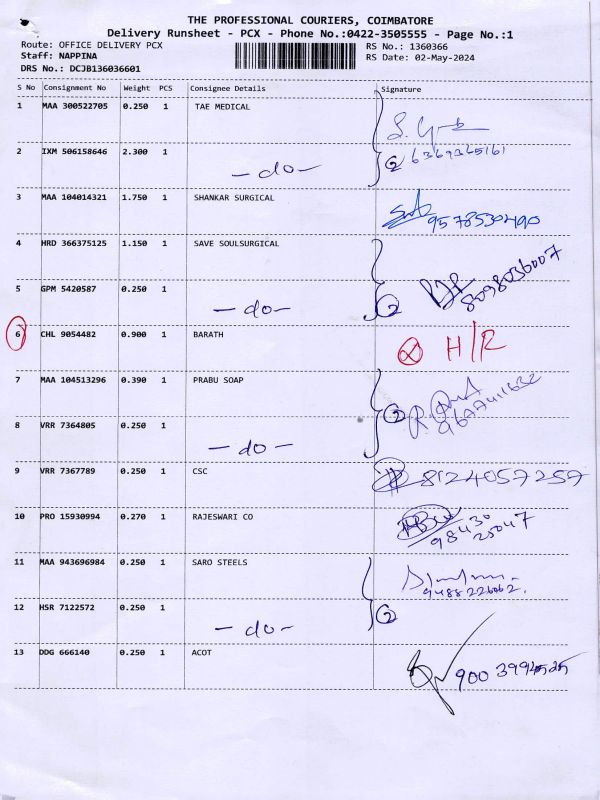 THE PROFESSIONAL COURIERS, COIMBATORE
Delivery Runsheet - PCX - Phone No.:0422-3505555 - Page No.:1
Route: OFFICE DELIVERY PCX RS No.: 1360366
Staff: NAPPINA RS Date: 02-May-2024
DRS No.: DCJB136036601
S No Consignment No Weight PCS Consignee Details Signature
1 MAA 300522705 0.250 1 TAE MEDICAL
2 IXM 506158646 2.300 1 - do - 2 6369365161
3 MAA 104014321 1.750 1 SHANKAR SURGICAL 9578530490
4 HRD 366375125 1.150 1 SAVE SOULSURGICAL 8098036007
5 GPM 5420587 0.250 1 - do - 2
6 CHL 9054482 0.900 1 BARATH H/R
7 MAA 104513296 0.390 1 PRABU SOAP 2
8 VRR 7364805 0.250 1 - do -
9 VRR 7367789 0.250 1 CSC 8124057257
10 PRO 15930994 0.270 1 RAJESWARI CO 98430 25047
11 MAA 943696984 0.250 1 SARO STEELS 9488226062.
12 HSR 7122572 0.250 1 - do - 2
13 DDG 666140 0.250 1 ACOT